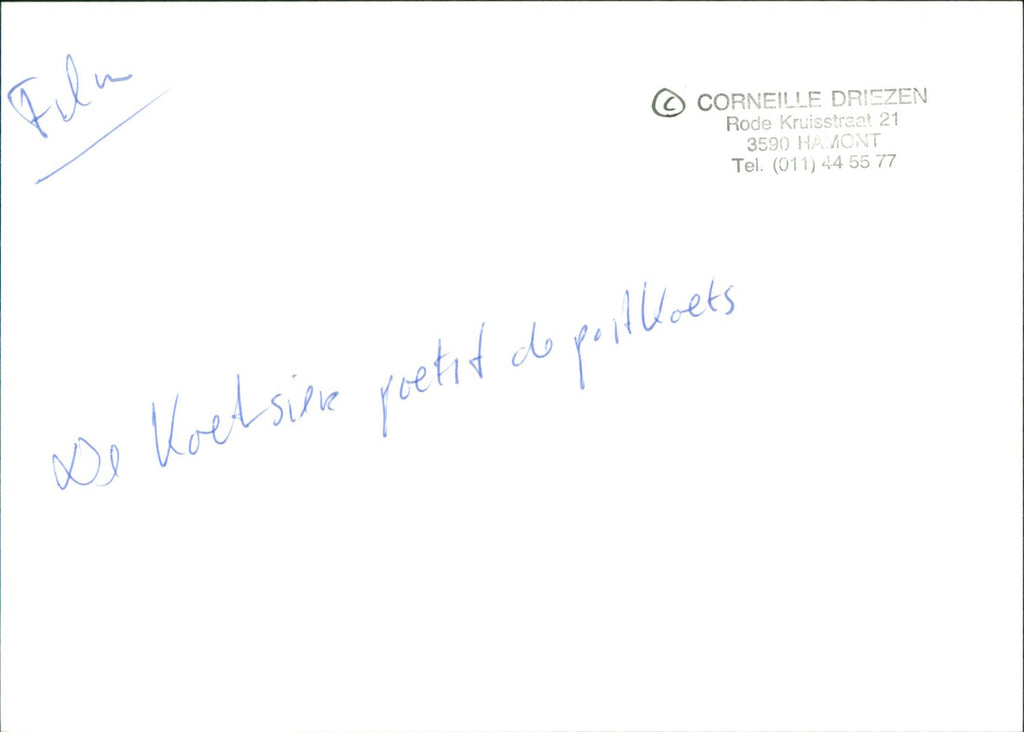 Film
© CORNEILLE DRIEZEN
Rode Kruisstraat 21
3590 HAMONT
Tel. (011) 44 55 77
De Koetsier poetst de postkoets